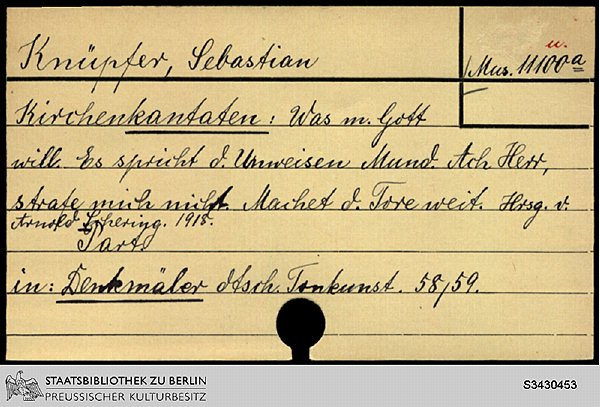 Knüpfer, Sebastian
u.
Mus. 11100a
Kirchenkantaten: Was m. Gott
will. Es spricht d. Unweisen Mund. Ach Herr,
strafe mich nicht. Machet d. Tore weit. Hrsg. v.
Arnold Schering. 1918.
Part.
in: Denkmäler dtsch. Tonkunst. 58/59.
STAATSBIBLIOTHEK ZU BERLIN
PREUSSISCHER KULTURBESITZ
S3430453